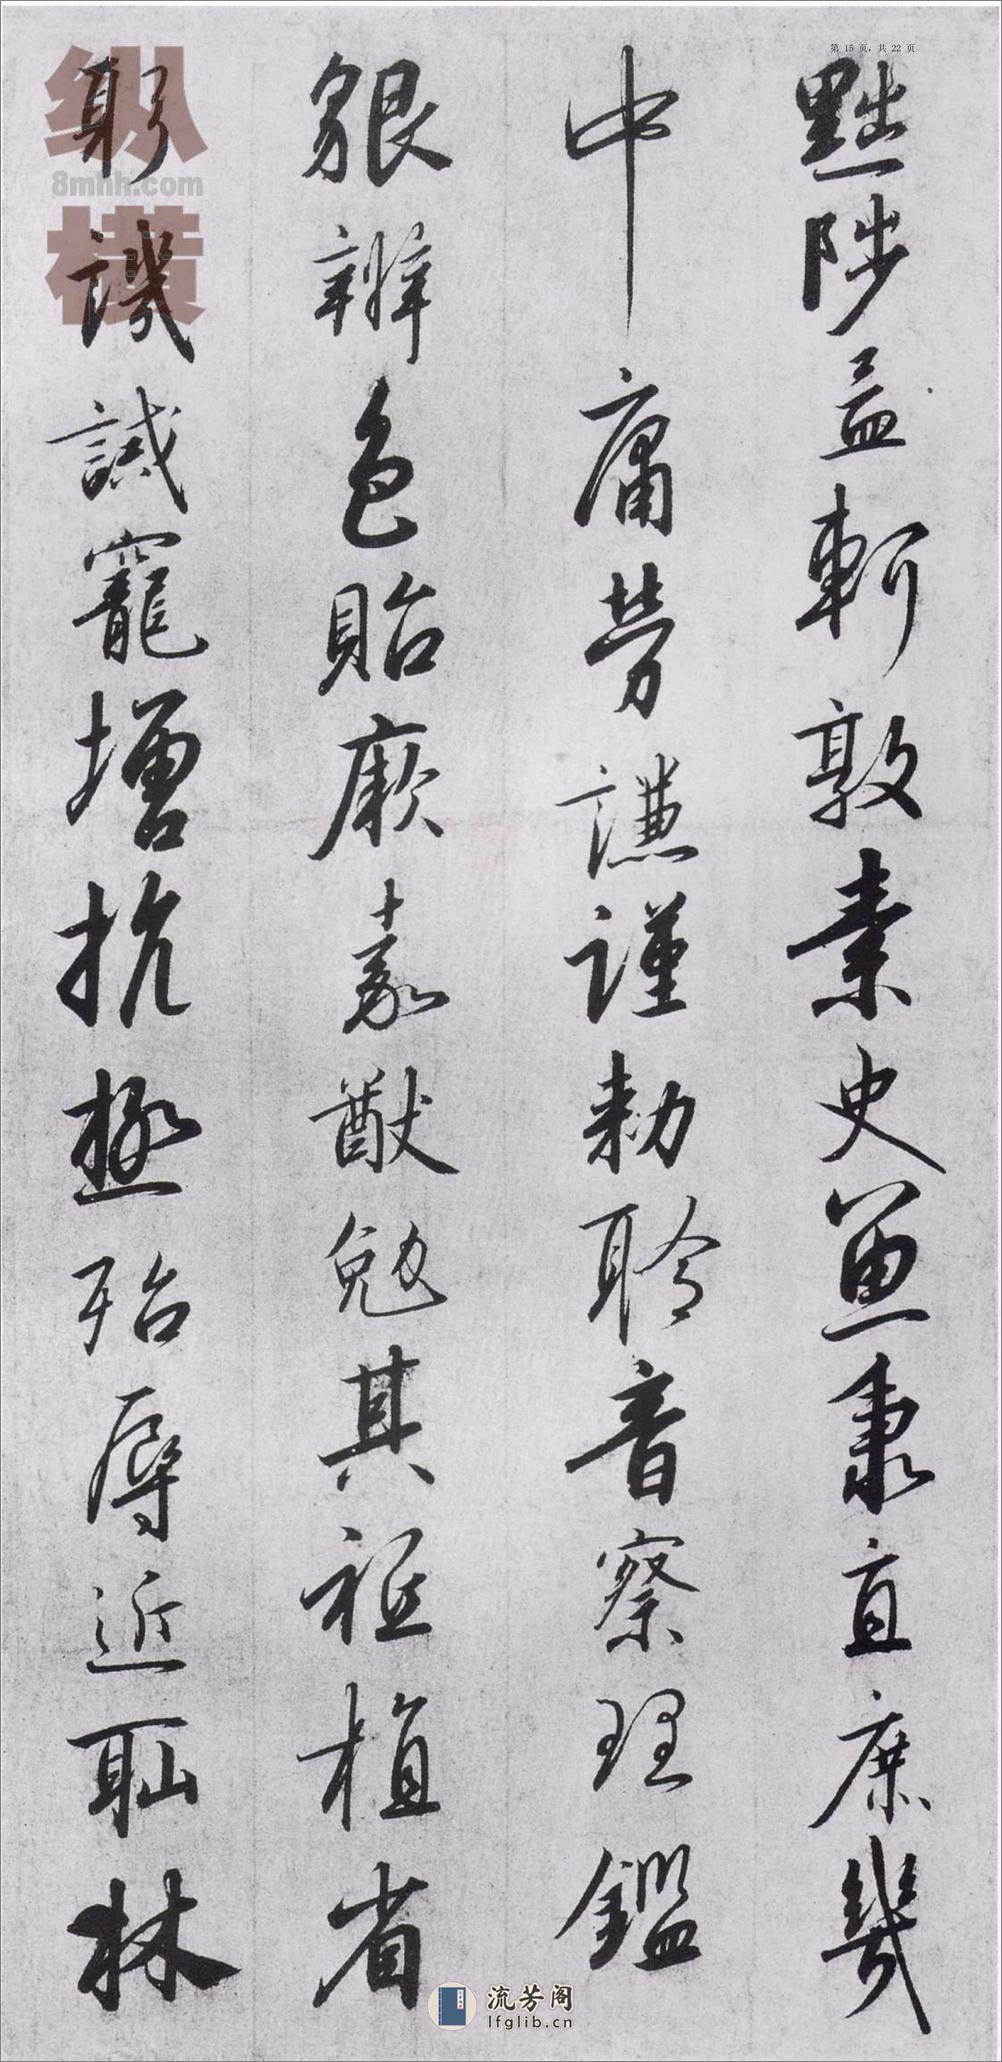 第 15 页，共 22 页
黜陟孟軻敦素史魚秉直庶幾
中庸勞謙謹勅聆音察理鑑
貌辯色貽厥嘉猷勉其祗植省
躬譏誡寵增抗極殆辱近恥林
纵横
8mhh.com
流芳阁
lfglib.cn